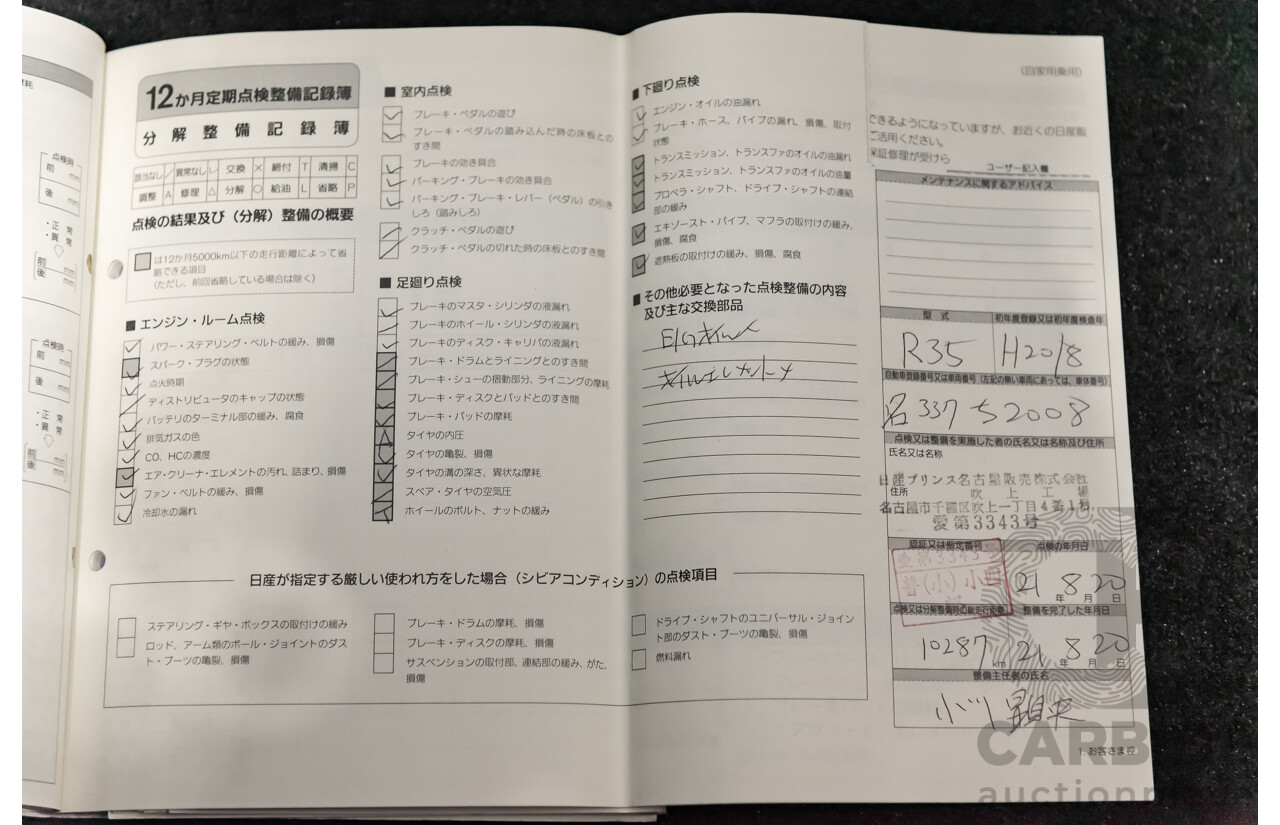 12か月定期点検整備記録簿
分解整備記録簿
該当なし／ 異常なしレ 交換 × 締付 T 清掃 C
調整 A 修理 △ 分解 ○ 給油 L 省略 P
点検の結果及び（分解）整備の概要
は12か月5000km以下の走行距離によって省
略できる項目
（ただし、前回省略している場合は除く）
■ エンジン・ルーム点検
パワー・ステアリング・ベルトの緩み、損傷
スパーク・プラグの状態
点火時期
ディストリビュータのキャップの状態
バッテリのターミナル部の緩み、腐食
排気ガスの色
CO、HCの濃度
エア・クリーナ・エレメントの汚れ、詰まり、損傷
ファン・ベルトの緩み、損傷
冷却水の漏れ
■ 室内点検
ブレーキ・ペダルの遊び
ブレーキ・ペダルの踏み込んだ時の床板との
すき間
ブレーキの効き具合
パーキング・ブレーキの効き具合
パーキング・ブレーキ・レバー（ペダル）の引き
しろ（踏みしろ）
クラッチ・ペダルの遊び
クラッチ・ペダルの切れた時の床板とのすき間
■ 足廻り点検
ブレーキのマスタ・シリンダの液漏れ
ブレーキのホイール・シリンダの液漏れ
ブレーキのディスク・キャリパの液漏れ
ブレーキ・ドラムとライニングとのすき間
ブレーキ・シューの摺動部分、ライニングの摩耗
ブレーキ・ディスクとパッドとのすき間
ブレーキ・パッドの摩耗
タイヤの内圧
タイヤの亀裂、損傷
タイヤの溝の深さ、異状な摩耗
スペア・タイヤの空気圧
ホイールのボルト、ナットの緩み
■ 下廻り点検
エンジン・オイルの油漏れ
ブレーキ・ホース、パイプの漏れ、損傷、取付
状態
トランスミッション、トランスファのオイルの油漏れ
トランスミッション、トランスファのオイルの油量
プロペラ・シャフト、ドライブ・シャフトの連結
部の緩み
エキゾースト・パイプ、マフラの取付けの緩み、
損傷、腐食
遮熱板の取付けの緩み、損傷、腐食
■ その他必要となった点検整備の内容
及び主な交換部品
E/Gオイル
オイルエレメント
日産が指定する厳しい使われ方をした場合（シビアコンディション）の点検項目
ステアリング・ギヤ・ボックスの取付けの緩み
ロッド、アーム類のボール・ジョイントのダス
ト・ブーツの亀裂、損傷
ブレーキ・ドラムの摩耗、損傷
ブレーキ・ディスクの摩耗、損傷
サスペンションの取付部、連結部の緩み、がた、
損傷
ドライブ・シャフトのユニバーサル・ジョイン
ト部のダスト・ブーツの亀裂、損傷
燃料漏れ
（自家用乗用）
できるようになっていますが、お近くの日産販
ご活用ください。
保証修理が受けら
ユーザー記入欄
メンテナンスに関するアドバイス
型式 初年度登録又は初年度検査年
R35 H20/8
自動車登録番号又は車両番号（左記の無い車両にあっては、車体番号）
名 337 ち2008
点検又は整備を実施した者の氏名又は名称及び住所
氏名又は名称
日産プリンス名古屋販売株式会社
住所 吹上工場
名古屋市千種区吹上一丁目4番1号
愛第3343号
認証又は指定番号 点検の年月日
愛第3343号
普(小)
21 年 8 月 20 日
点検又は分解整備時の総走行距離 整備を完了した年月日
10287 km 21 年 8 月 20 日
整備主任者の氏名
1 お客さま控
点検時
前 mm
後 mm
・正常
・異常
前 mm
後 mm
点検時
前 mm
後 mm
・正常
・異常
前 mm
後 mm